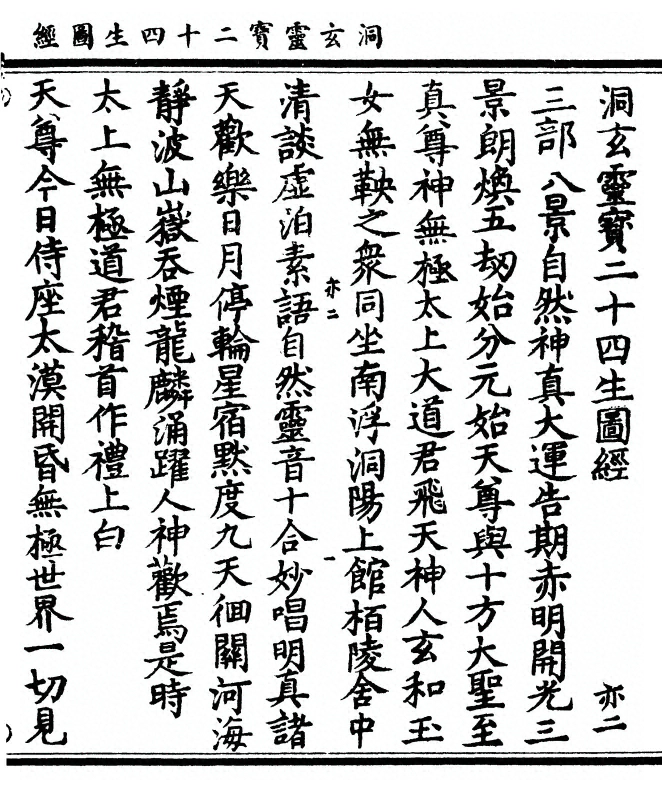 洞玄靈寶二十四生圖經
洞玄靈寶二十四生圖經
亦二
三部八景自然神真大運告期赤明開光三
景朗煥五劫始分元始天尊與十方大聖至
真尊神無極太上大道君飛天神人玄和玉
女無鞅之衆同坐南浮洞陽上館栢陵舍中
亦二
一
清談虛泊素語自然靈音十合妙唱明真諸
天歡樂日月停輪星宿默度九天徊關河海
靜波山嶽吞煙龍麟涌躍人神歡焉是時
太上無極道君稽首作禮上白
天尊今日侍座太漠開昏無極世界一切見